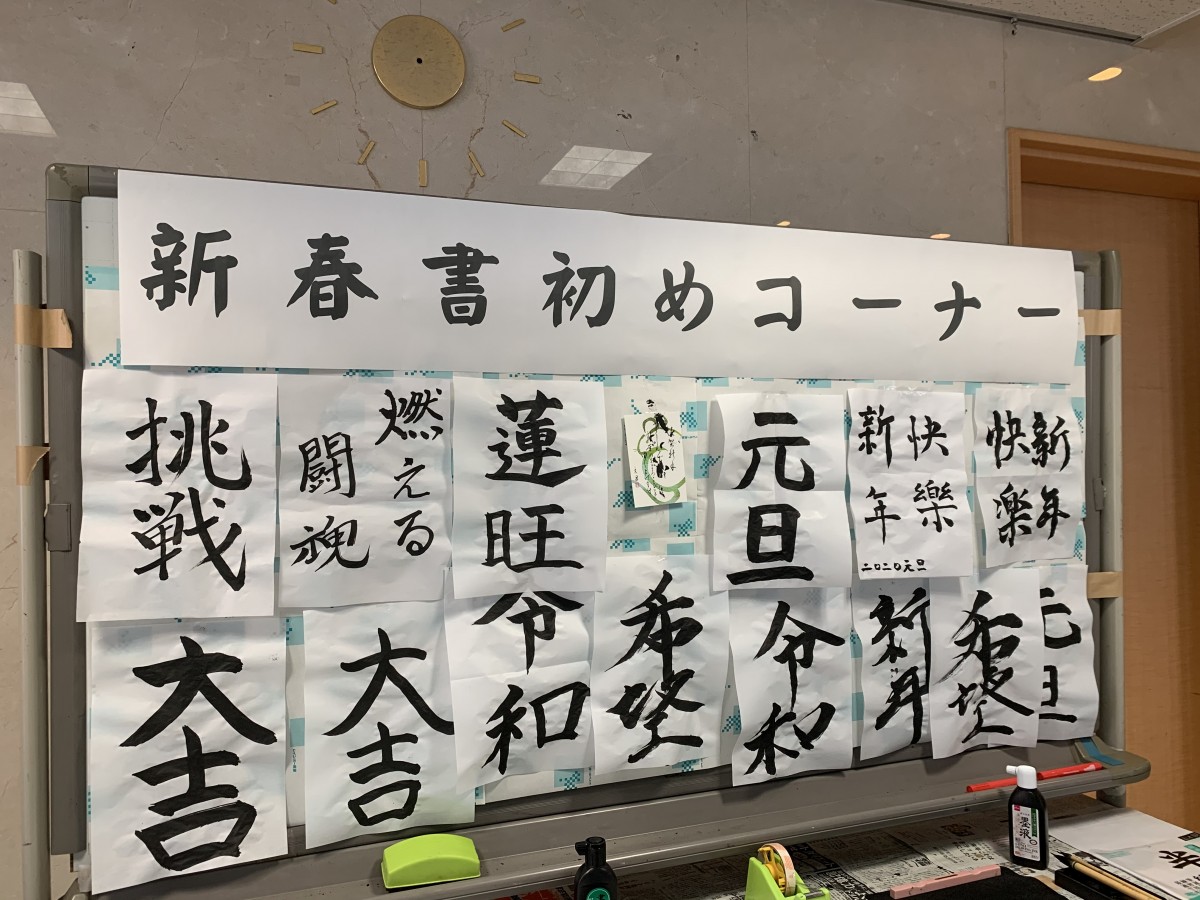 新春書初めコーナー
挑戦
燃える
闘魂
蓮旺
元旦
快樂
新年
二〇二〇元旦
新年
快楽
大吉
大吉
令和
希望
令和
新年
希望
元旦
墨液